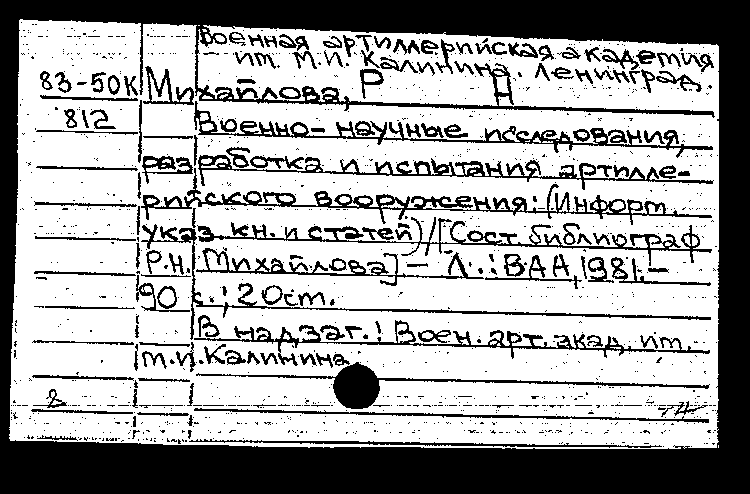 Военная артиллерийская академия
им. М.И. Калинина. Ленинград.
83-50К Михайлова, Р Н
812 Военно-научные исследования,
разработка и испытания артилле-
рийского вооружения: (Информ.
указ. кн. и статей) / [Сост. библиограф
Р.Н. Михайлова] - Л.: ВАА, 1981. -
90 с.; 20 см.
В надзаг.: Воен. арт. акад. им.
М.И. Калинина.